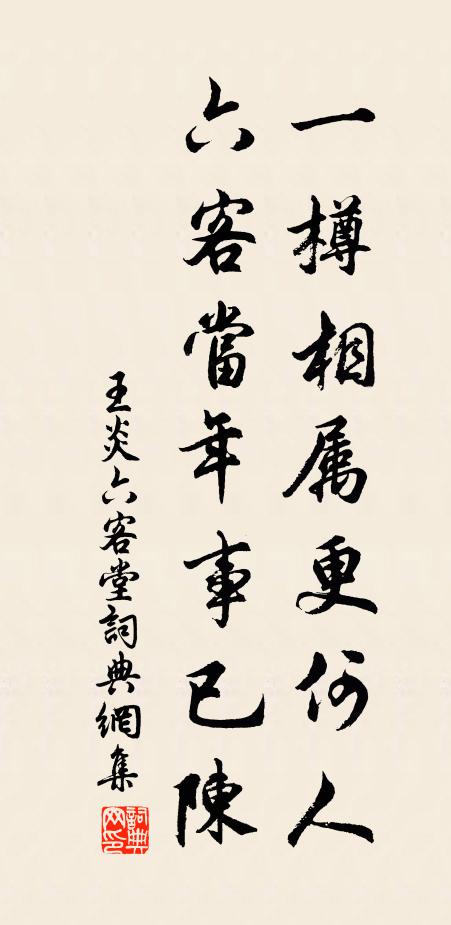 一樽相属更何人
六客當年事已陳
王炎六客堂詞典網集
詞典网印